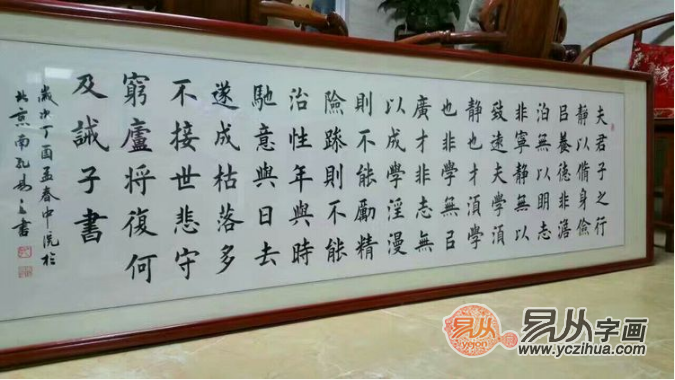 夫君子之行
靜以脩身儉
㠯養德非澹
泊無以明志
非寧靜無以
致遠夫學須
靜也才須學
也非學無㠯
廣才非志無
以成學淫漫
則不能勵精
險躁則不能
治性年與時
馳意與日去
遂成枯落多
不接世悲守
窮廬將復何
及誡子書
歲次丁酉孟春中浣於
北京南孔書
易从字画
www.yczihua.com